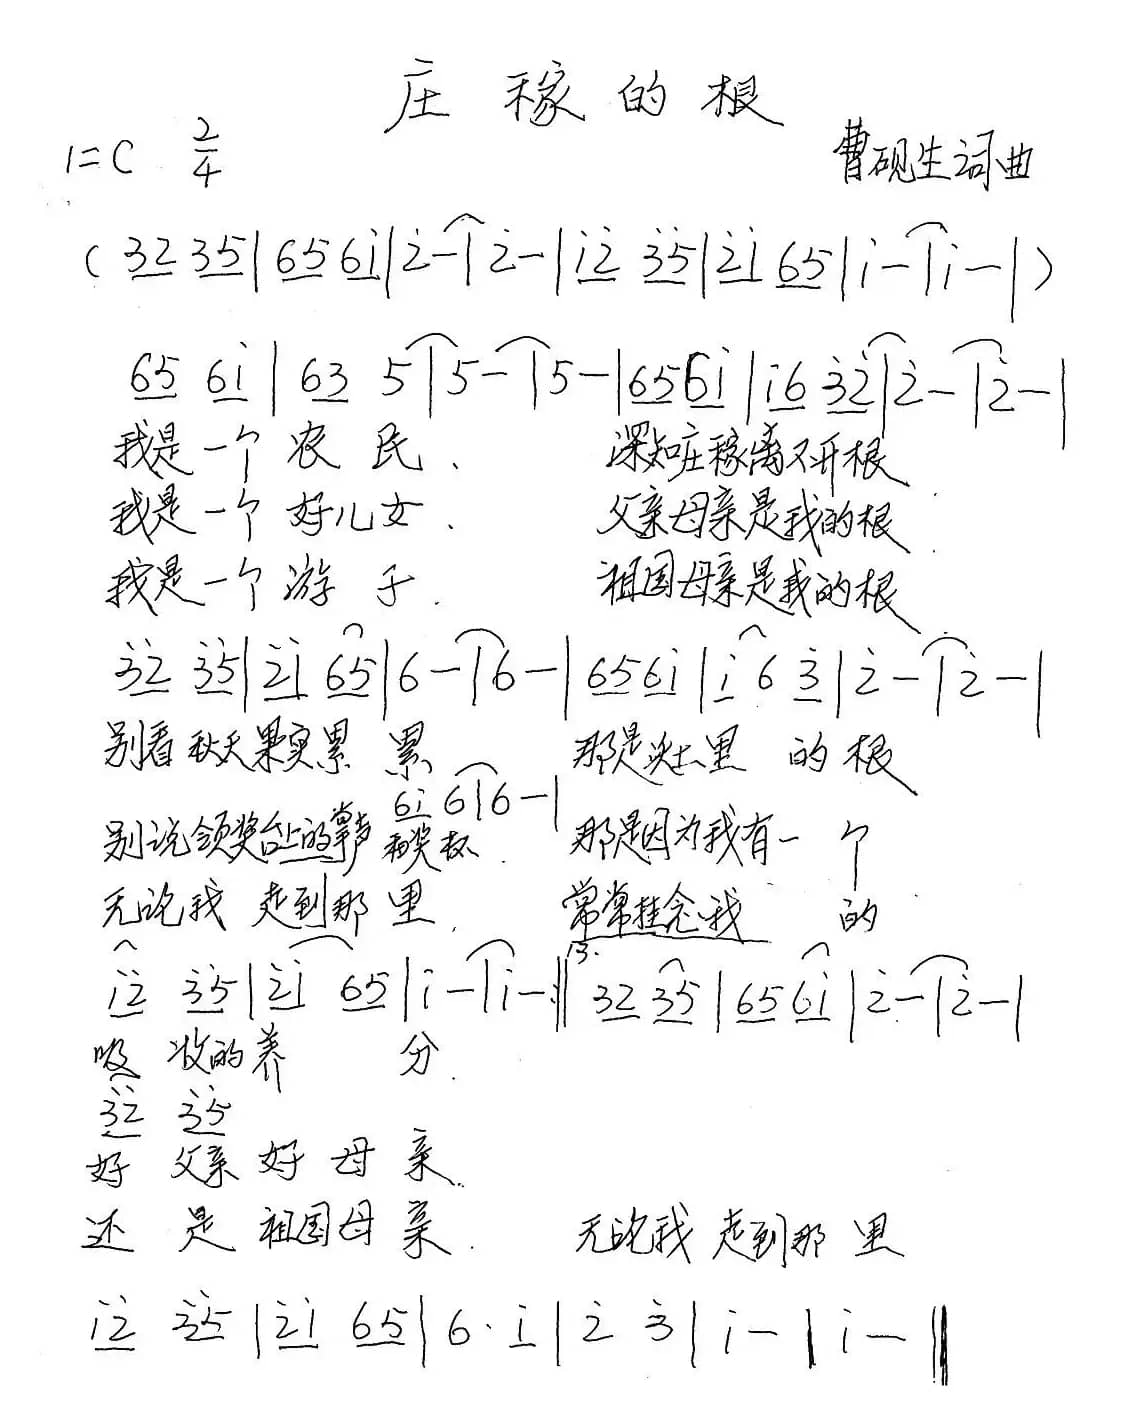 庄稼的根
1=C 2/4
曹砚生词曲
( 32 35 | 65 6i | 2̇ - | 2̇ - | i2̇ 3̇5̇ | 2̇i 65 | i - | i - | )
65 6i | 63 5 | 5 - | 5 - | 65 6i | i6 3̇2̇ | 2̇ - | 2̇ - |
我是一个农民. 深知庄稼离不开根
我是一个好儿女. 父亲母亲是我的根
我是一个游子. 祖国母亲是我的根
3̇2̇ 3̇5̇ | 2̇i 65 | 6 - | 6 - | 65 6i | i 6 3̇ | 2̇ - | 2̇ - |
别看秋天果实累累 那是泥土里的根
6i 6 | 6 - |
别说领奖台上的掌声和奖杯. 那是因为我有一个
无论我走到那里. 常常挂念我的
i2̇ 3̇5̇ | 2̇i 65 | i - | i - :‖ 13. 32 35 | 65 6i | 2̇ - | 2̇ - |
吸收的养分.
3̇2̇ 3̇5̇
好父亲好母亲.
还是祖国母亲. 无论我走到那里
i2̇ 3̇5̇ | 2̇i 65 | 6· i | 2̇ 3̇ | i - | i - ‖